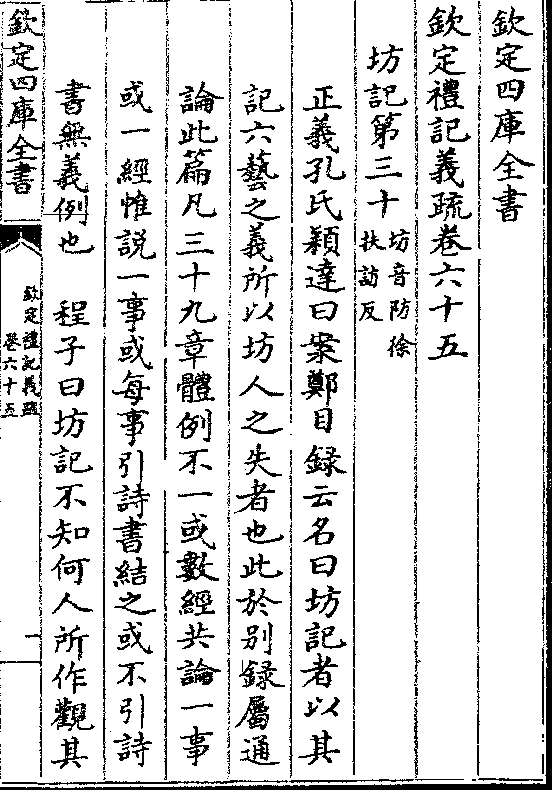 欽定四庫全書
欽定禮記義疏卷六十五
坊記第三十坊音防徐扶訪反
正義孔氏穎達曰案鄭目錄云名曰坊記者以其
記六藝之義所以坊人之失者也此於別錄屬通
論此篇凡三十九章體例不一或數經共論一事
或一經惟說一事或每事引詩書結之或不引詩
書無義例也　程子曰坊記不知何人所作觀其
欽定四庫全書
欽定禮記義疏
卷六十五
一